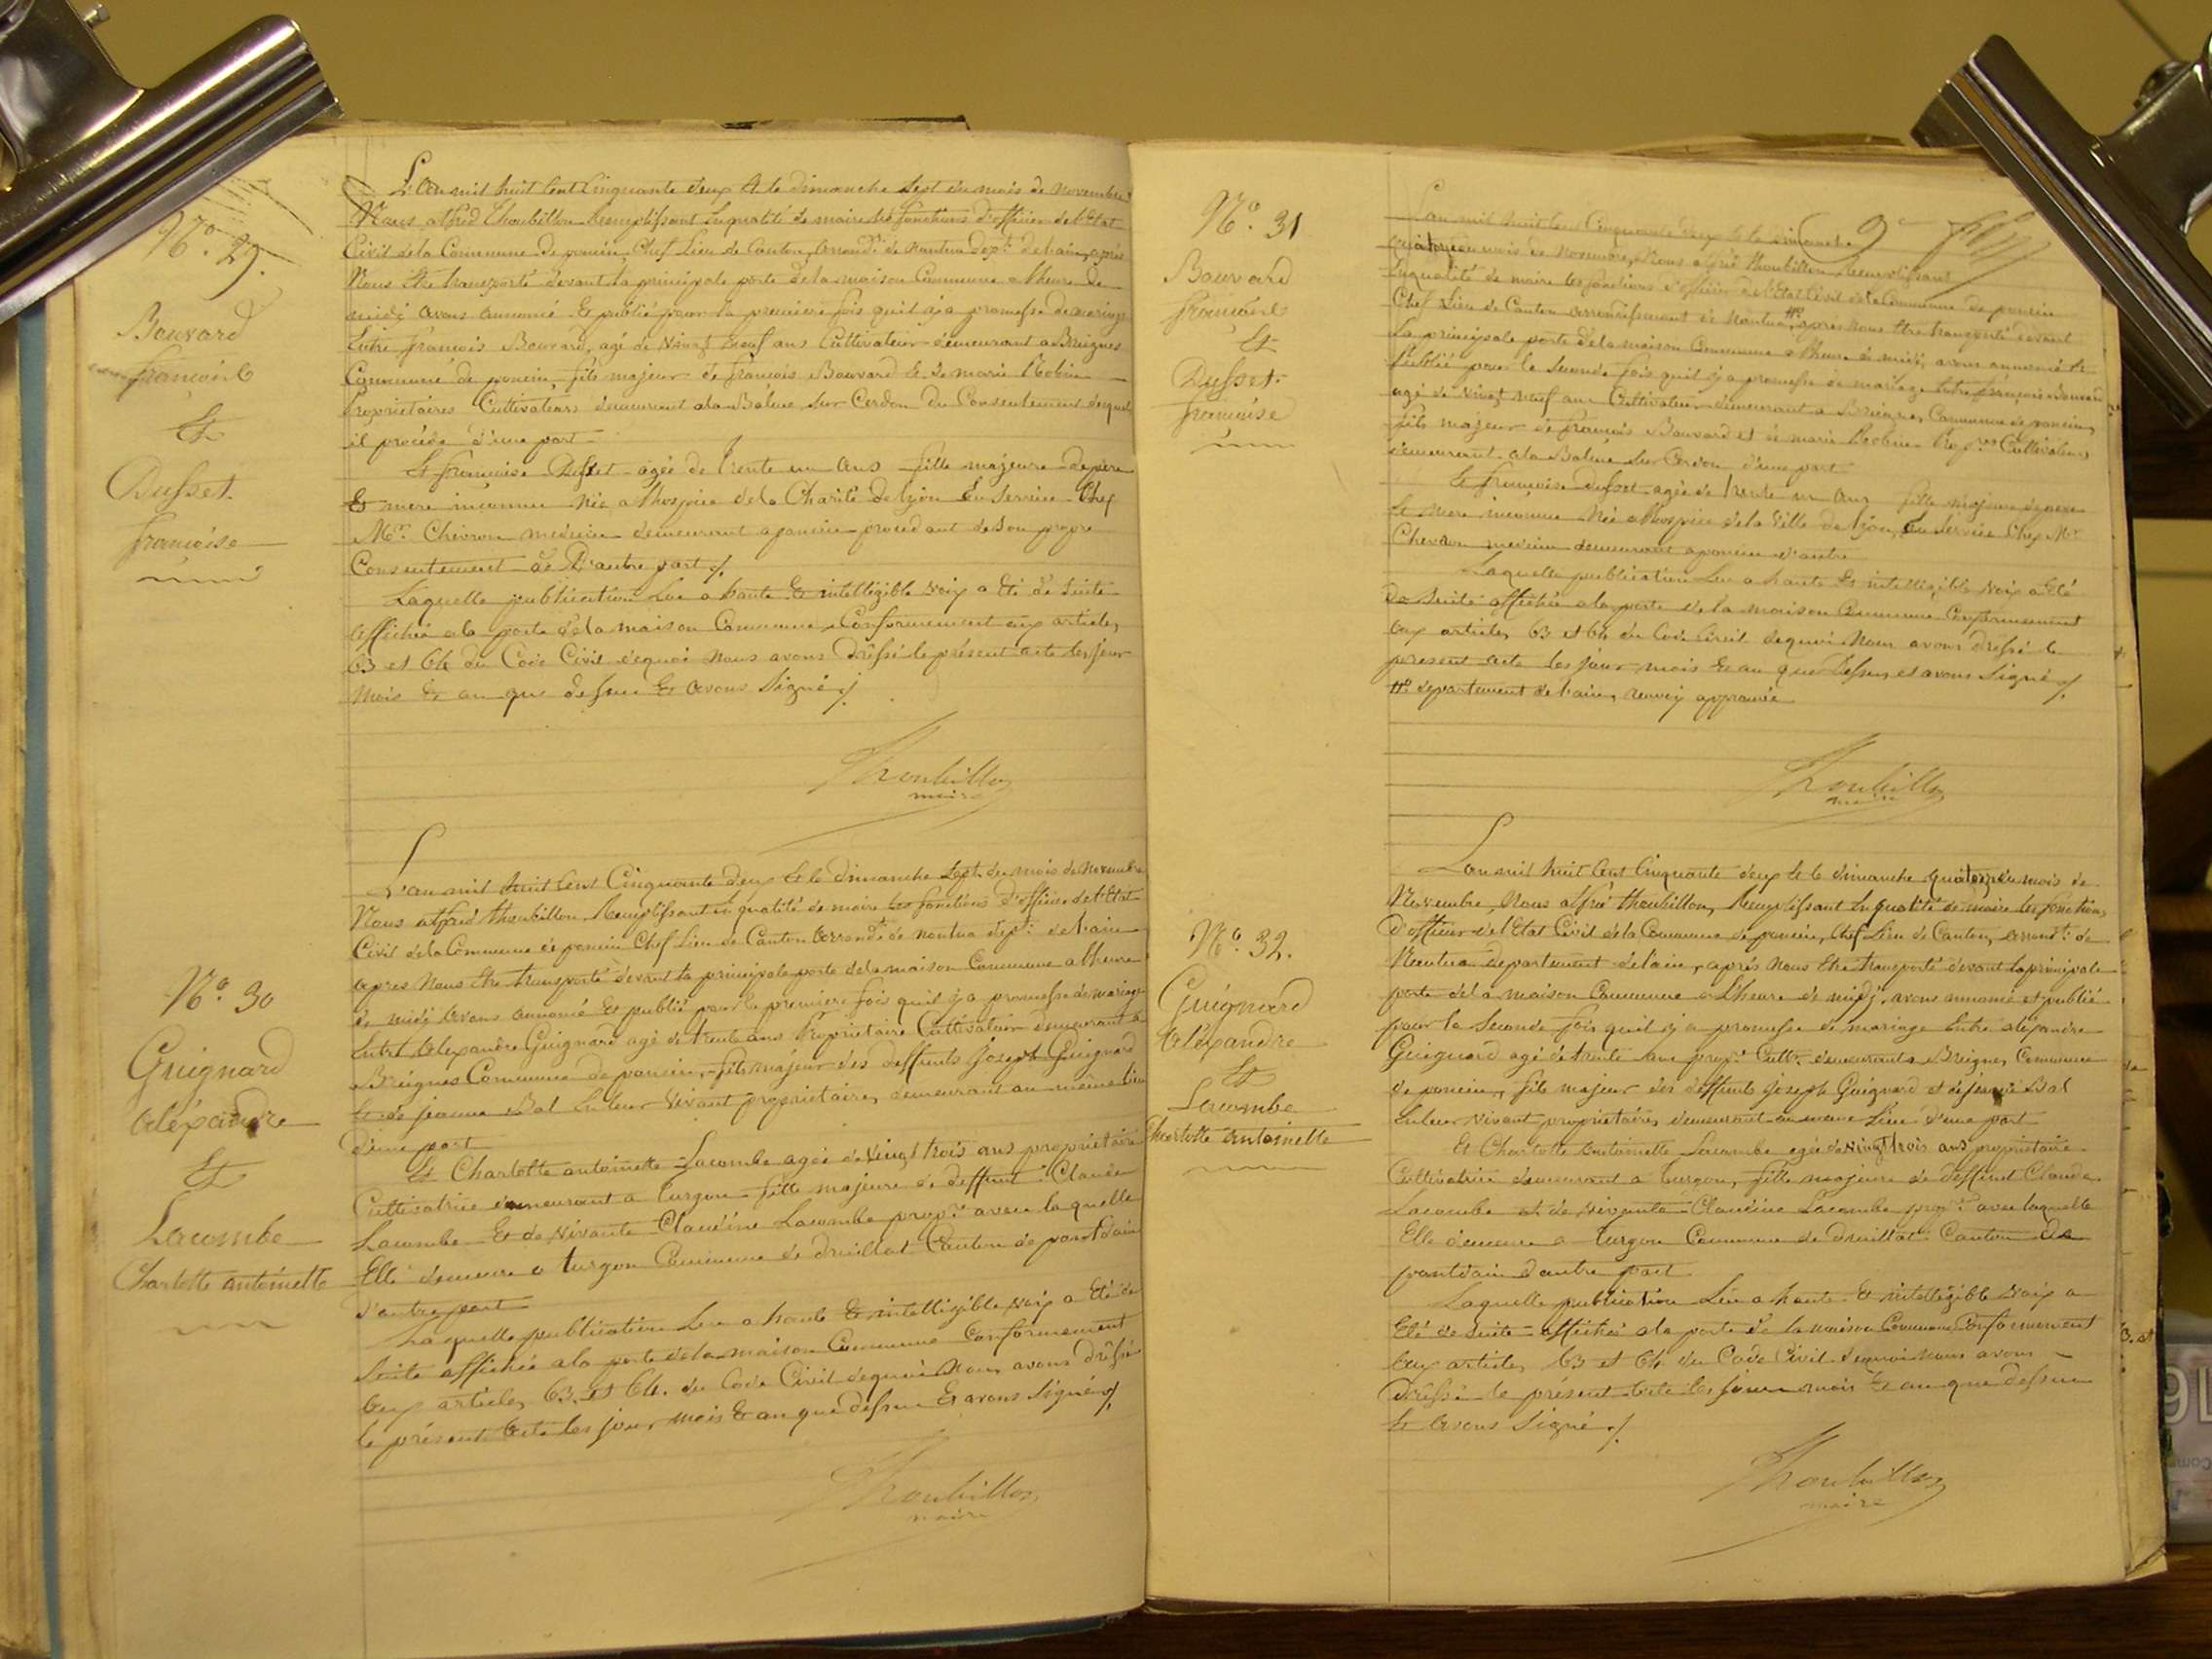 N.º 29.
Bouvard
françois
Et
Dusset
françoise
L'an mil huit Cent Cinquante deux & le dimanche Sept du mois de novembre
Nous alfred Thoubillon Remplissant En qualité de maire les fonctions d'officier de l'Etat
Civil de la Commune de poncin, Chef Lieu de Canton, arrond.t de Nantua Dep.t de l'ain, après
Nous être transporté devant la principale porte de la maison Commune a l'heure de
midi avons annoncé Et publié pour la première fois qu'il y a promesse de mariage
Entre françois Bouvard, agé de Vingt Neuf ans Cultivateur demeurant a Breignes
Commune de poncin, fils majeur de françois Bouvard & de marie Robin
Propriétaires Cultivateurs demeurant a la Balme sur Cerdon du Consentement desquels
il procède d'une part
Et françoise Dusset agée de trente un ans fille majeure de père
& mère inconnu Née a l'hospice de la Charité de Lyon En Service Chez
M.r Chevron medecin demeurant a poncin procédant de son propre
Consentement de D'autre part ./.
Laquelle publication Lue a haute & intelligible voix a été de suite
affichée a la porte de la maison Commune, Conformément aux articles
63 et 64 du Code Civil dequoi nous avons dréssé le présent acte les jour
mois & an que dessus & avons Signé ./.
Thoubillon
maire
N.º 30
Guignard
aléxandre
Et
Lacombe
Charlotte antoinette
L'an mil huit Cent Cinquante deux & le dimanche Sept du mois de Novembre
Nous alfred thoubillon, Remplissant en qualité de maire les fonctions d'officier de l'Etat
Civil de la Commune de poncin Chef Lieu de Canton arrond.t de nantua dep.t de l'ain
apres Nous être transporté devant la principale porte de la maison Commune a l'heure
de midi avons annoncé & publié pour la premiere fois qu'il y a promesse de mariage
Entre alexandre Guignard agé de trente ans Propriétaire Cultivateur demeurant a
Breignes Commune de poncin, fils majeur des deffunts Joseph Guignard
& de jeanne Bal En leur vivant propriétaires demeurant au même lieu
d'une part
Et Charlotte antoinette Lacombe agée de vingt trois ans propriétaire
Cultivatrice demeurant a turgon fille majeure de deffunt Claude
Lacombe & de vivante Claudine Lacombe prop.re avec laquelle
Elle demeure a turgon Commune de druillat Canton de pontdain
d'autre part
Laquelle publication Lue a haute & intelligible voix a Eté de
suite affichée a la porte de la maison Commune Conformément
aux articles 63 et 64. du Code Civil dequoi Nous avons dréssé
le présent acte les jour, mois & an que dessus & avons Signé ./.
Thoubillon
maire
N.º 31
Bouvard
françois
Et
Dusset
françoise
L'an mil huit Cent Cinquante deux & le dimanche
quatorze du mois de Novembre, Nous alfred thoubillon Remplissant
En qualité de maire les fonctions d'officier de l'Etat Civil de la Commune de poncin
Chef Lieu de Canton arrondissement de Nantua, après Nous être transporté devant
La principale porte de la maison Commune a l'heure de midi, avons annoncé &
Publié pour la Seconde fois qu'il y a promesse de mariage Entre françois Bouvard
agé de vingt neuf ans Cultivateur demeurant a Breignes, Commune de poncin,
fils majeur de françois Bouvard et de marie Robin Prop.res Cultivateurs
demeurant a la Balme sur Cerdon d'une part
Et françoise dusset agée de trente un ans fille majeure de père
& mere inconnu Née a l'hospice de la Ville de Lyon, En Service Chez M.r
Chevron medecin demeurant a poncin d'autre
Laquelle publication Lue a haute & intelligible voix a Eté
de suite affichée a la porte de la maison Commune Conformement
aux articles 63 et 64 du Code Civil dequoi Nous avons dressé le
present acte les jour mois & an que Dessus, et avons Signé ./.
departement de l'ain, renvoi approuvé
Thoubillon
maire
N.º 32.
Guignard
aléxandre
Et
Lacombe
Charlotte antoinette
L'an mil huit Cent Cinquante deux & le dimanche quatorze du mois de
Novembre, Nous alfred thoubillon, Remplissant En qualité de maire les fonctions
d'officier de l'Etat Civil de la Commune de poncin, Chef Lieu de Canton, arrond.t de
Nantua département de l'ain, après Nous être transporté devant la principale
porte de la maison Commune a l'heure de midi, avons annoncé et publié
pour la Seconde fois qu'il y a promesse de mariage Entre aléxandre
Guignard agé de trente ans prop.re Cult.r demeurant a Breignes Commune
de poncin, fils majeur des deffunts joseph Guignard et de jeanne Bal
En leur vivant propriétaires, demeurant au même Lieu d'une part
Et Charlotte antoinette Lacombe agée de vingt trois ans propriétaire
Cultivatrice demeurant a turgon, fille majeure de deffunt Claude
Lacombe et de vivante Claudine Lacombe prop.re avec laquelle
Elle demeure a turgon Commune de druillat Canton de
pontdain d'autre part
Laquelle publication Lue a haute & intelligible voix a
Eté de suite affichée a la porte de la maison Commune Conformément
aux articles 63 et 64. du Code Civil dequoi nous avons
Dréssé le présent acte les jour mois & an que dessus
& avons Signé ./.
Thoubillon
maire